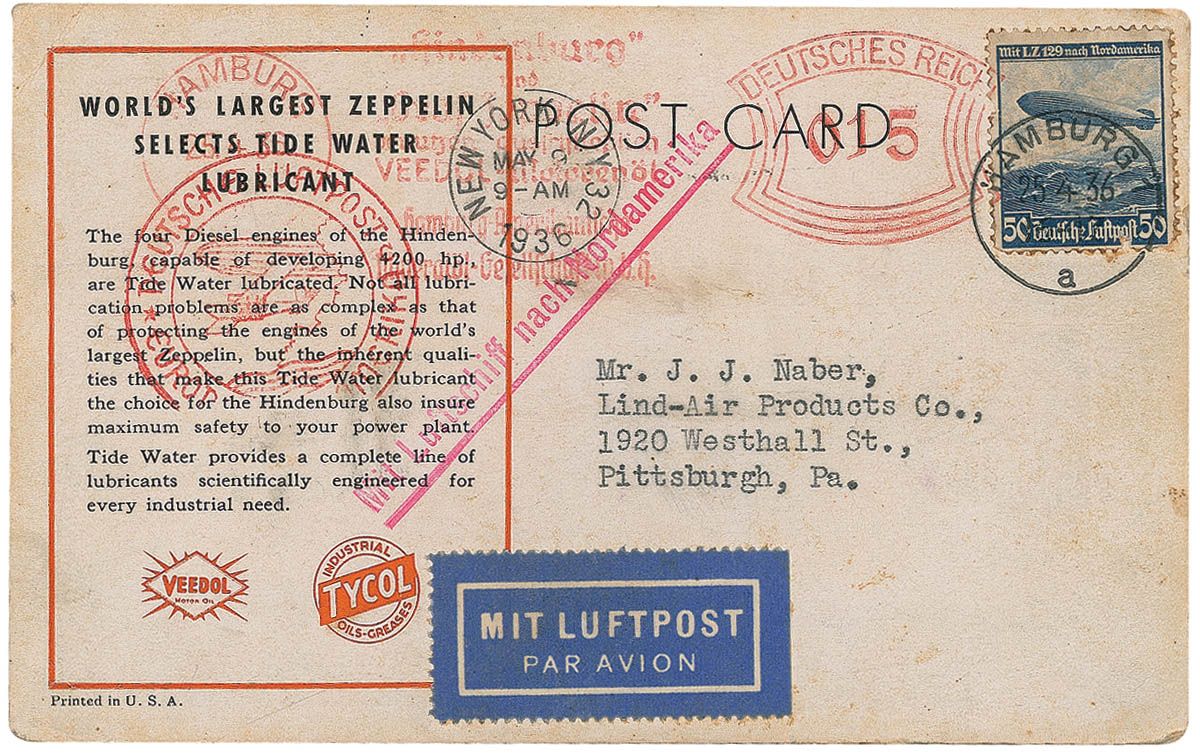 WORLD'S LARGEST ZEPPELIN
SELECTS TIDE WATER
LUBRICANT
The four Diesel engines of the Hinden-
burg, capable of developing 4200 hp.,
are Tide Water lubricated. Not all lubri-
cation problems are as complex as that
of protecting the engines of the world's
largest Zeppelin, but the inherent quali-
ties that make this Tide Water lubricant
the choice for the Hindenburg also insure
maximum safety to your power plant.
Tide Water provides a complete line of
lubricants scientifically engineered for
every industrial need.
VEEDOL
MOTOR OIL
INDUSTRIAL
TYCOL
OILS-GREASES
Printed in U. S. A.
HAMBURG
DEUTSCHE LUFTPOST
"Hindenburg"
und
VEEDOL
POST CARD
NEW YORK, N.Y.
MAY 9
9-AM
1936
Mit Luftschiff nach Nordamerika
DEUTSCHES REICH
015
Mit LZ 129 nach Nordamerika
50 Deutsche Luftpost 50
HAMBURG
25.4.36
a
Mr. J. J. Naber,
Lind-Air Products Co.,
1920 Westhall St.,
Pittsburgh, Pa.
MIT LUFTPOST
PAR AVION